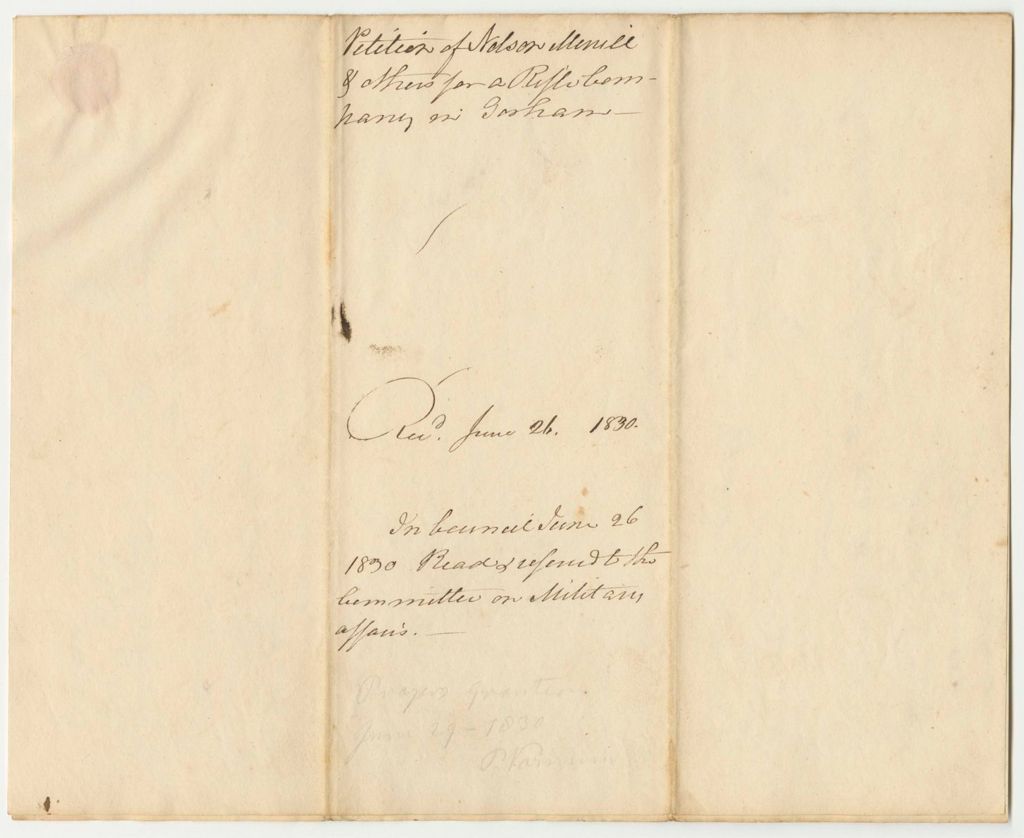 Petition of Nelson Merrill
& others for a Rifle Com-
pany in Gorham—
Recd. June 26. 1830.
In Council June 26
1830 Read & referred to the
Committee on Military
affairs.—
Prayer granted.
June 29 - 1830